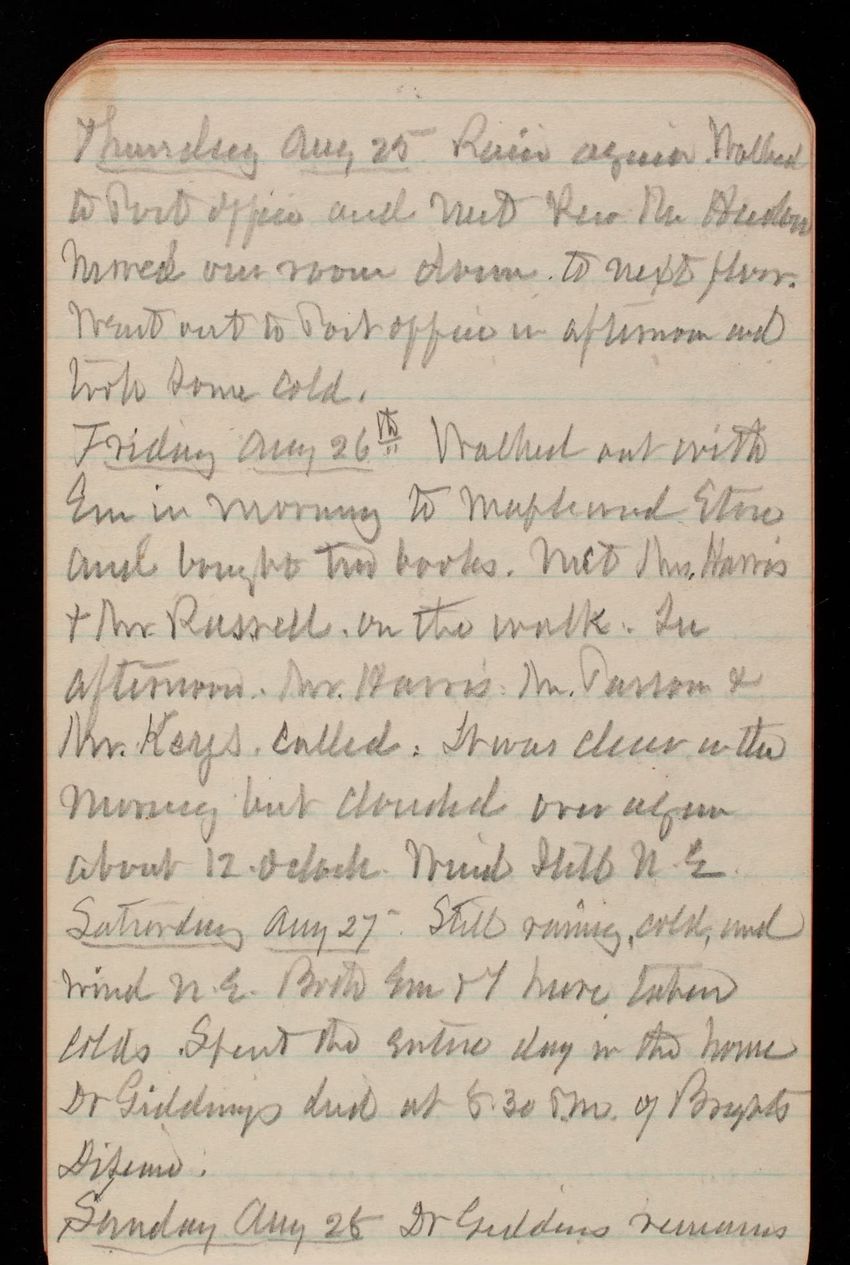 Thursday Aug 25 Rain again. Walked
to Post office and met Rev Mr
Moved our room down to next floor.
Went out to Post office in afternoon and
took some cold.
Friday Aug 26th Walked out with
Em in morning to Maplewood Store
and bought two books. Met Mrs. Harris
& Mr. Russell. on the walk. In
afternoon. Mr. Harris. Mr. Parson &
Mr. Keys. called. It was clear in the
morning but clouded over again
about 12 oclock. Wind Still N.E.
Saturday Aug 27 Still raining, cold, and
wind N.E. Both Em & I have taken
colds. Spent the entire day in the house
Dr Giddings died at 8.30 P.M. of Brights
Disease.
Sunday Aug 28 Dr Giddins remains